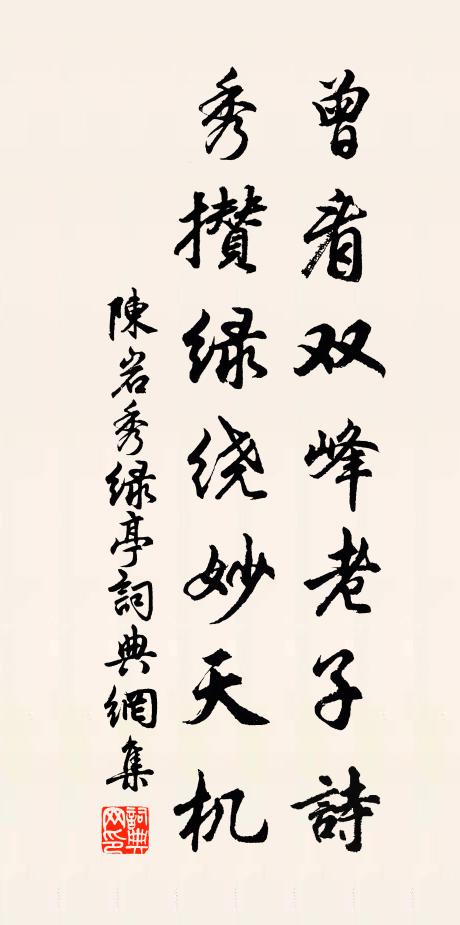 曾看双峰老子詩
秀攢绿绕妙天机
陳岩秀绿亭詞典網集
詞典网印